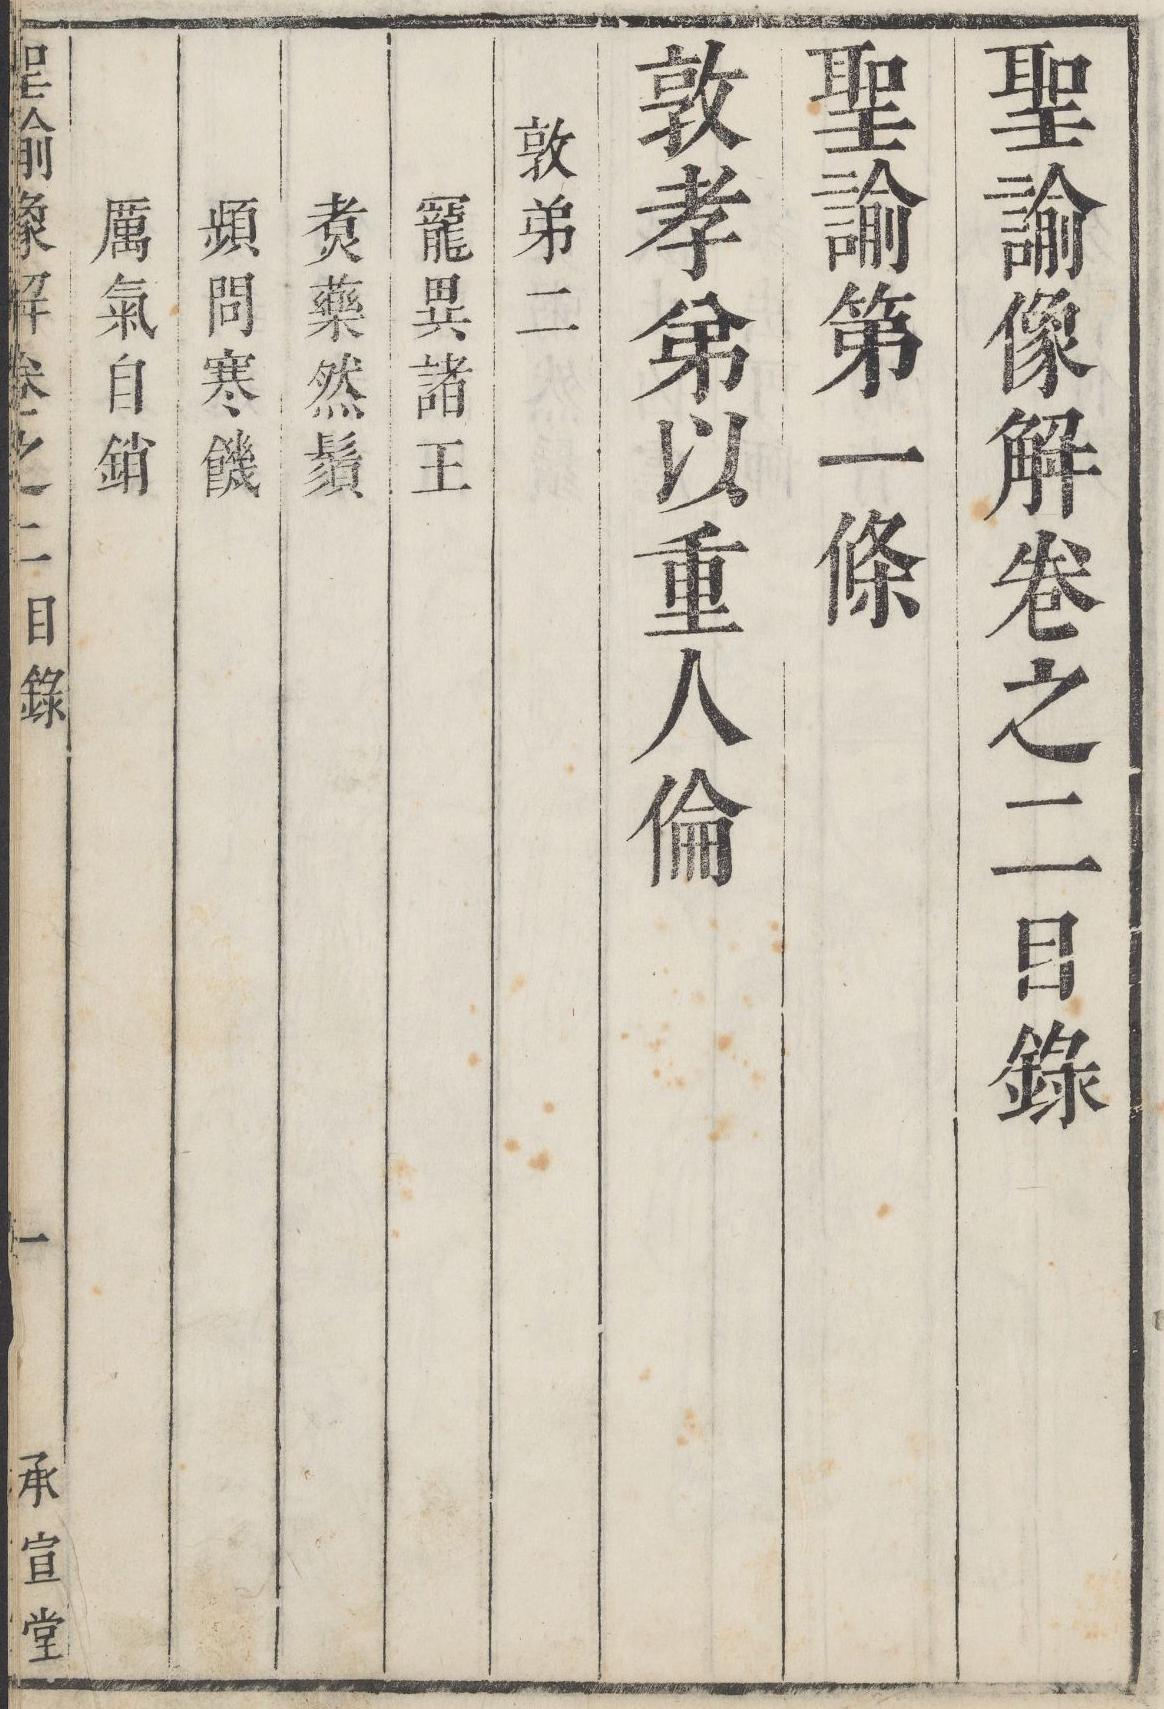 聖諭像解卷之二目錄
聖諭第一條
敦孝弟以重人倫
敦弟二
寵異諸王
煑藥然鬚
頻問寒饑
厲氣自銷
聖諭像解卷之二目錄 一 承宣堂